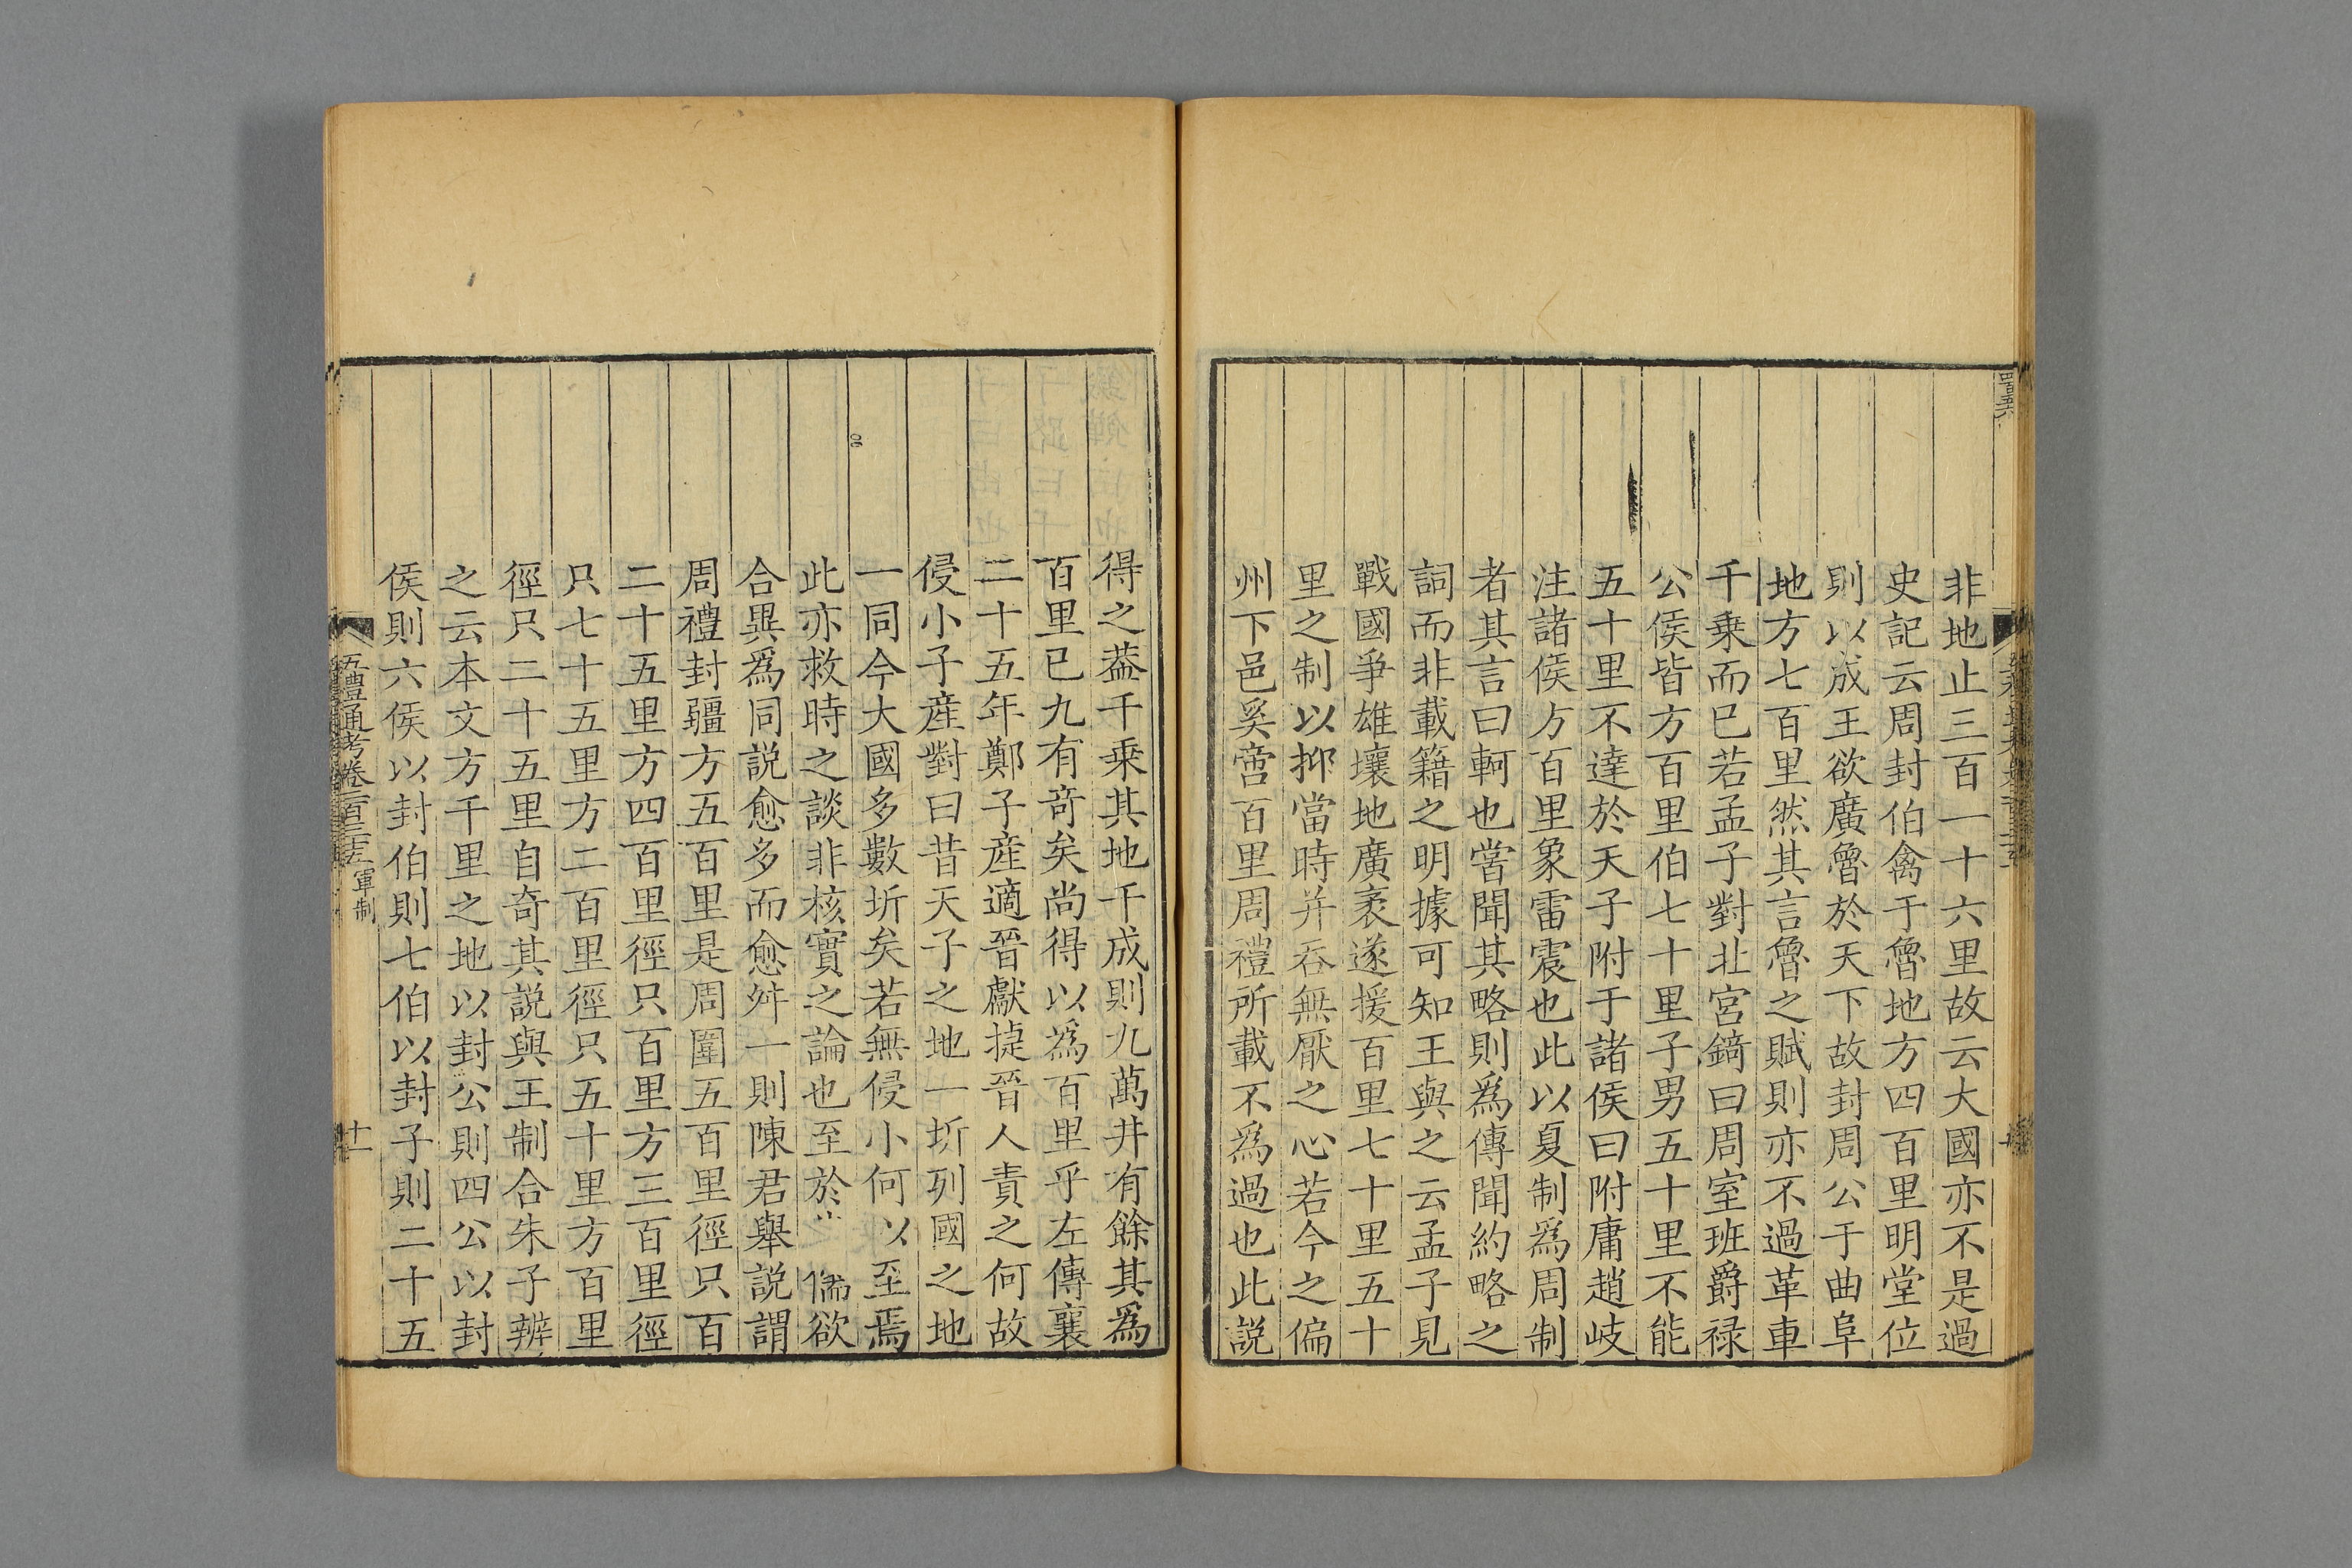 非地止三百一十六里故云大國亦不是過
史記云周封伯禽于魯地方四百里明堂位
則以成王欲廣魯於天下故封周公于曲阜
地方七百里然其言魯之賦則亦不過革車
千乗而已若孟子對北宮錡曰周室班爵禄
公侯皆方百里伯七十里子男五十里不能
五十里不達於天子附于諸侯曰附庸趙岐
注諸侯方百里象雷震也此以夏制爲周制
者其言曰軻也嘗聞其略則爲傳聞約略之
詞而非載籍之明據可知王與之云孟子見
戰國爭雄壤地廣袤遂援百里七十里五十
里之制以抑當時并吞無厭之心若今之偏
州下邑奚啻百里周禮所載不爲過也此説
得之葢千乗其地千成則九萬井有餘其爲
百里已九有竒矣尚得以爲百里乎左傳襄
二十五年鄭子産適晉獻㨗晉人責之何故
侵小子産對曰昔天子之地一圻列國之地
一同今大國多數圻矣若無侵小何以至焉
此亦救時之談非核實之論也至於儒欲
合異爲同説愈多而愈舛一則陳君舉説謂
周禮封疆方五百里是周圍五百里徑只百
二十五里方四百里徑只百里方三百里徑
只七十五里方二百里徑只五十里方百里
徑只二十五里自奇其説與王制合朱子辨
之云本文方千里之地以封公則四公以封
侯則六侯以封伯則七伯以封子則二十五
五禮通考卷二百三十五 軍制
十一